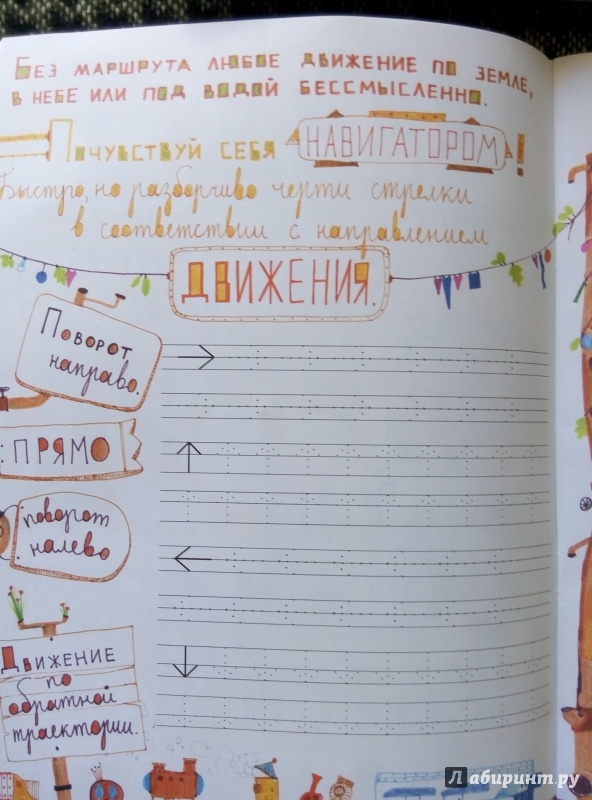 Без маршрута любое движение по земле,
в небе или под водой бессмысленно.
Почувствуй себя НАВИГАТОРОМ!
Быстро, но разборчиво черти стрелки
в соответствии с направлением
ДВИЖЕНИЯ.
Поворот
направо.
ПРЯМО
поворот
налево
Движение
по
обратной
траектории.
Лабиринт.ру